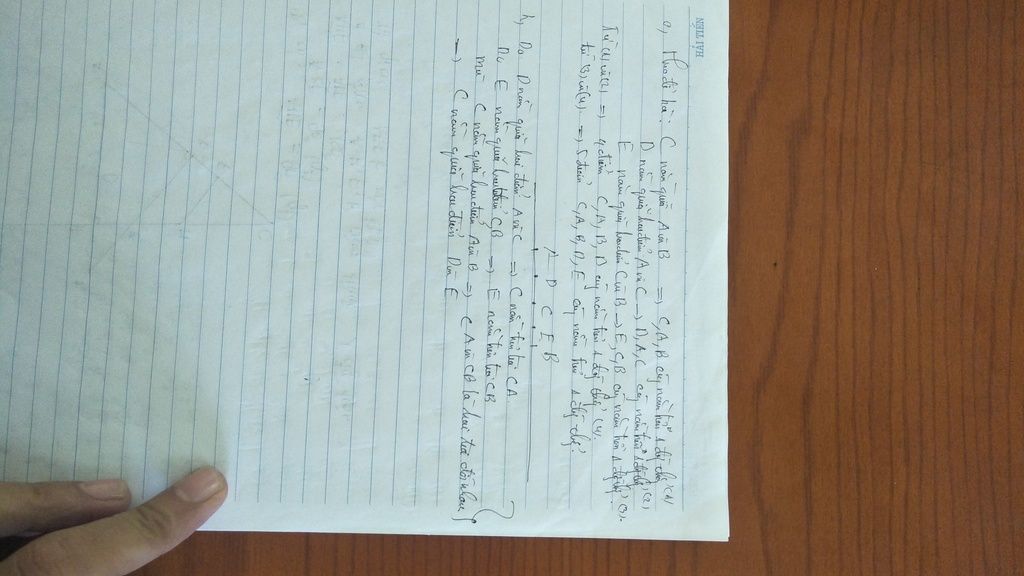 HẢI TIẾN
a, Theo đề bài: C nằm giữa A và B => C, A, B cùng nằm trên 1 đg thg (1)
D nằm giữa hai điểm A và C -> D, A, C cùng nằm trên 1 đg thg (2)
E nằm giữa hai điểm C và B -> E, C, B cùng nằm trên 1 đg thg (3).
Từ (1) và (2) => 4 điểm C, A, B, D cùng nằm trên 1 đg thg (4).
từ (3) và (4) => 5 điểm C, A, B, D, E cùng nằm trên 1 đg thg.
A D C E B
b, Do D nằm giữa hai điểm A và C => C nằm trên tia CA
Do E nằm giữa hai điểm C, B => E nằm trên tia CB
mà C nằm giữa hai điểm A và B => CA và CB là hai tia đối nhau
-> C nằm giữa hai điểm D và E